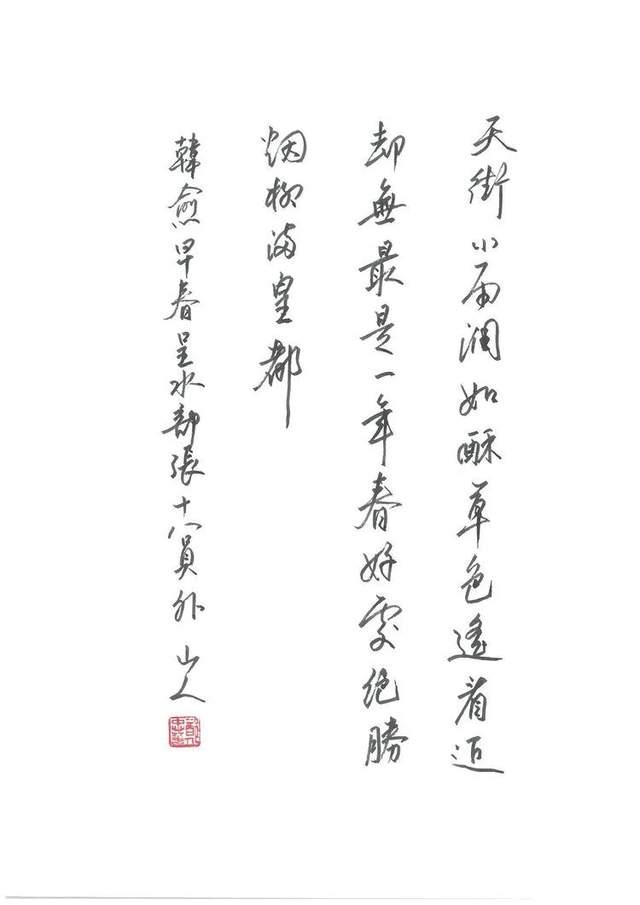 天街小雨潤如酥草色遙看近
却無最是一年春好處絕勝
烟柳滿皇都
韓愈早春呈水部張十八員外 山人